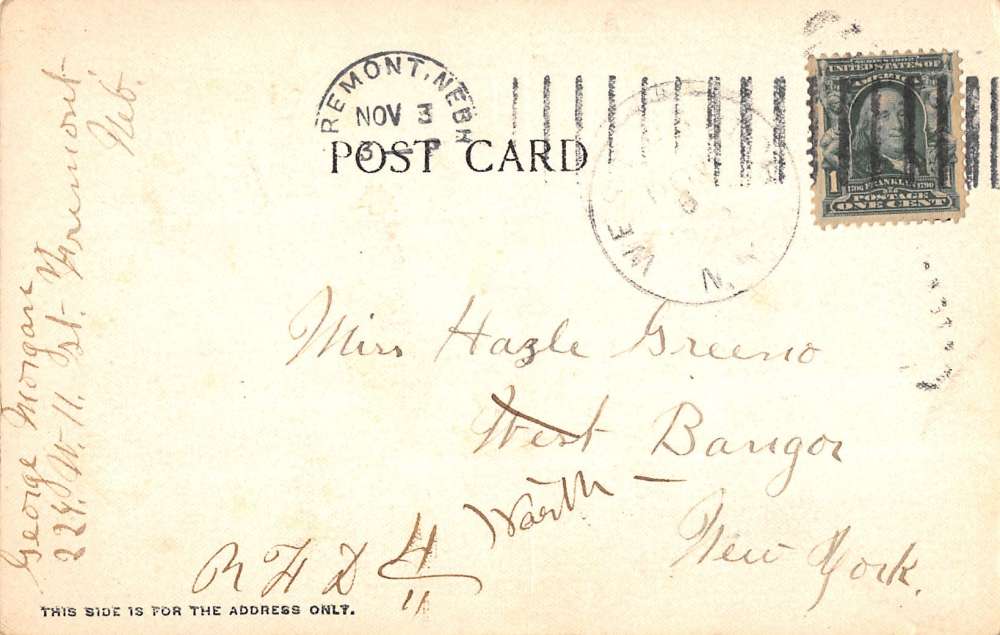 REMONT, NEBR
NOV 3
3 — P
POST CARD
SERIES 1902
UNITED STATES OF
AMERICA
1
1706 FRANKLIN 1790
POSTAGE
ONE CENT
WES
N
Miss Hazle Greeno
West Bangor
North —
New York.
R F D 4
11
George Morgan
224. W. 11. St. Fremont.
Neb.
THIS SIDE IS FOR THE ADDRESS ONLY.